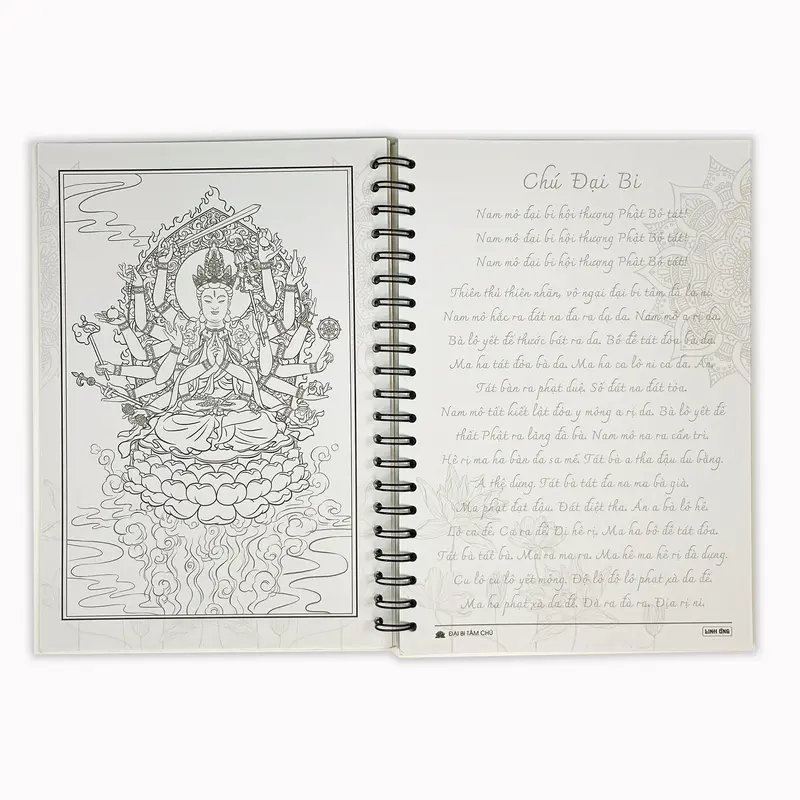 Chú Đại Bi
Nam mô đại bi hội thượng Phật Bồ tát!
Nam mô đại bi hội thượng Phật Bồ tát!
Nam mô đại bi hội thượng Phật Bồ tát!
Thiên thủ thiên nhãn, vô ngại đại bi tâm đà la ni.
Nam mô hắc ra đát na đa ra dạ da. Nam mô a rị da.
Bà lô yết đế thước bát ra da. Bồ đề tát đỏa bà da.
Ma ha tát đỏa bà da. Ma ha ca lô ni ca da. Án.
Tát bàn ra phạt duệ. Số đát na đát tỏa.
Nam mô tất kiết lật đỏa y mông a rị da. Bà lô yết đế
thất Phật ra lăng đà bà. Nam mô na ra cẩn trì.
Hê rị ma ha bàn đa sa mế. Tát bà a tha đậu du bằng.
A thệ dựng. Tát bà tát đa na ma bà già.
Ma phạt đạt đậu. Đát điệt tha. Án a bà lô hê.
Lô ca đế. Ca ra đế. Di hê rị. Ma ha bồ đề tát đỏa.
Tát bà tát bà. Ma ra ma ra. Ma hê ma hê rị đà dựng.
Cu lô cu lô yết mông. Độ lô đồ lô phạt xà da đế.
Ma ha phạt xà da đế. Đà ra đà ra. Địa rị ni.
ĐẠI BI TÂM CHÚ
LINH ỨNG